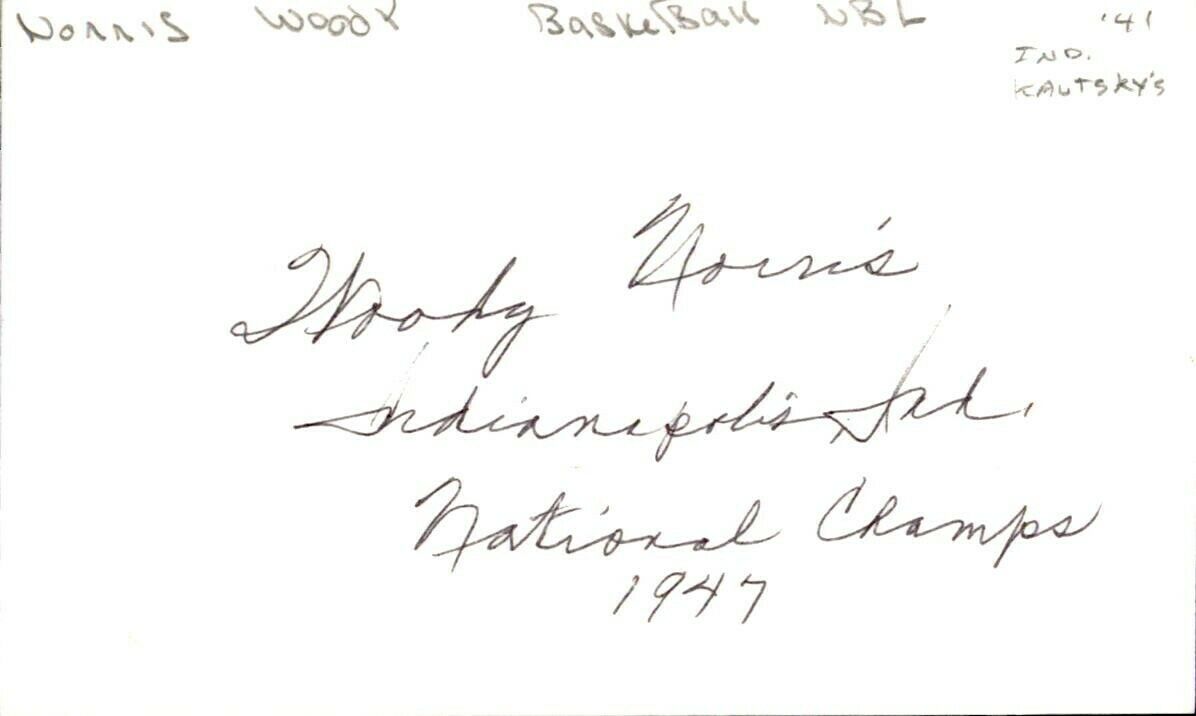 Norris Woody BasketBall NBL '41
IND.
KAUTSKY'S
Woody Norris
Indianapolis, Ind.
National Champs
1947